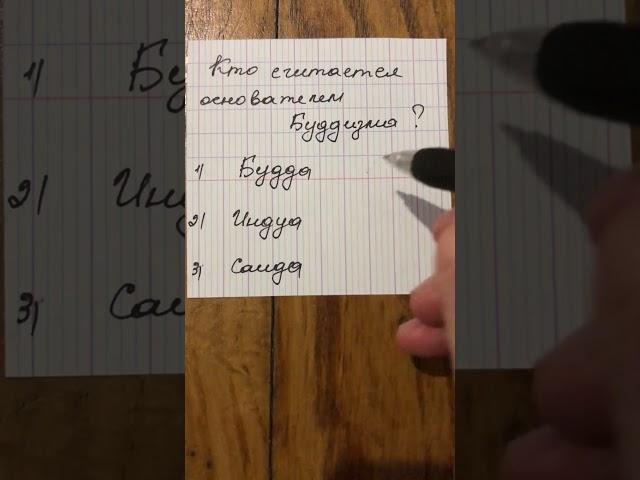 Кто считается
основателем
Буддизма ?
1) Будда
2) Индуа
3) Саида